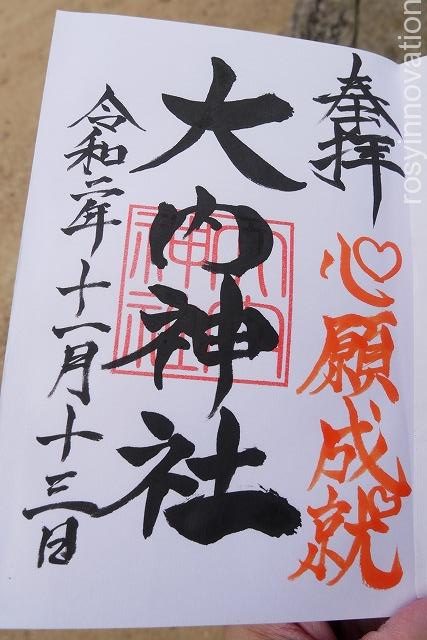 奉拝
心願成就
大内神社
大内神社
令和二年十一月十三日
rosyinnovation